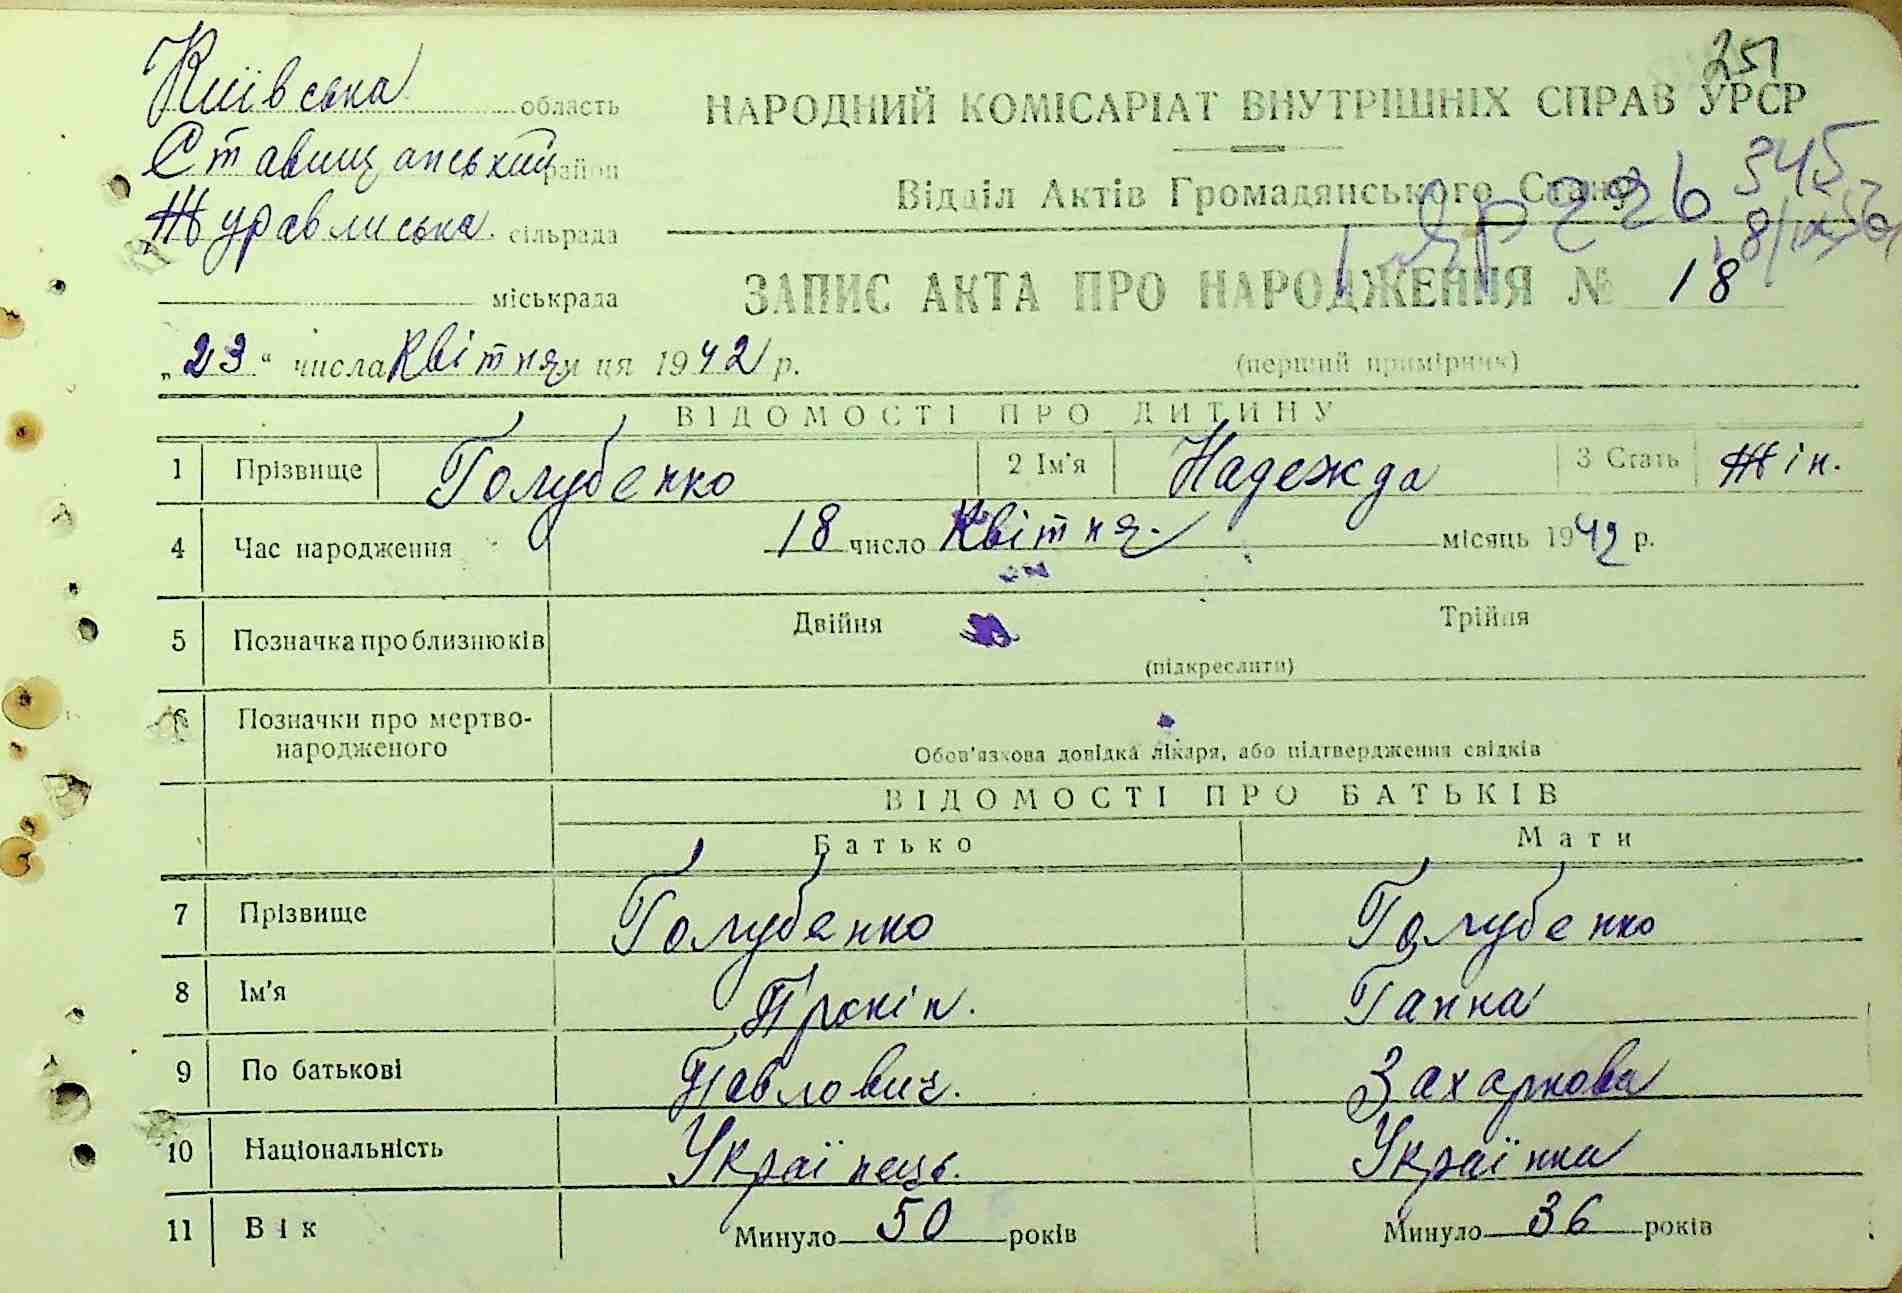 251
Київська область
НАРОДНИЙ КОМІСАРІАТ ВНУТРІШНІХ СПРАВ УРСР
Ставищанський район
Відділ Актів Громадянського Стану
345
Журавлиська сільрада
міськрада
ЗАПИС АКТА ПРО НАРОДЖЕННЯ № 18
„23“ числа Квітня м ця 1942 р.
(перший примірник)
ВІДОМОСТІ ПРО ДИТИНУ
1 Прізвище Голубенко 2 Ім'я Надежда 3 Стать Жін.
4 Час народження 18 число Квітня. місяць 1942 р.
5 Позначка про близнюків Двійня Трійня
(підкреслити)
6 Позначки про мертво-
народженого
Обов'язкова довідка лікаря, або підтвердження свідків
ВІДОМОСТІ ПРО БАТЬКІВ
Батько Мати
7 Прізвище Голубенко Голубенко
8 Ім'я Прокіп. Ганна
9 По батькові Павлович. Захаркова
10 Національність Українець. Українка
11 Вік Минуло 50 років Минуло 36 років